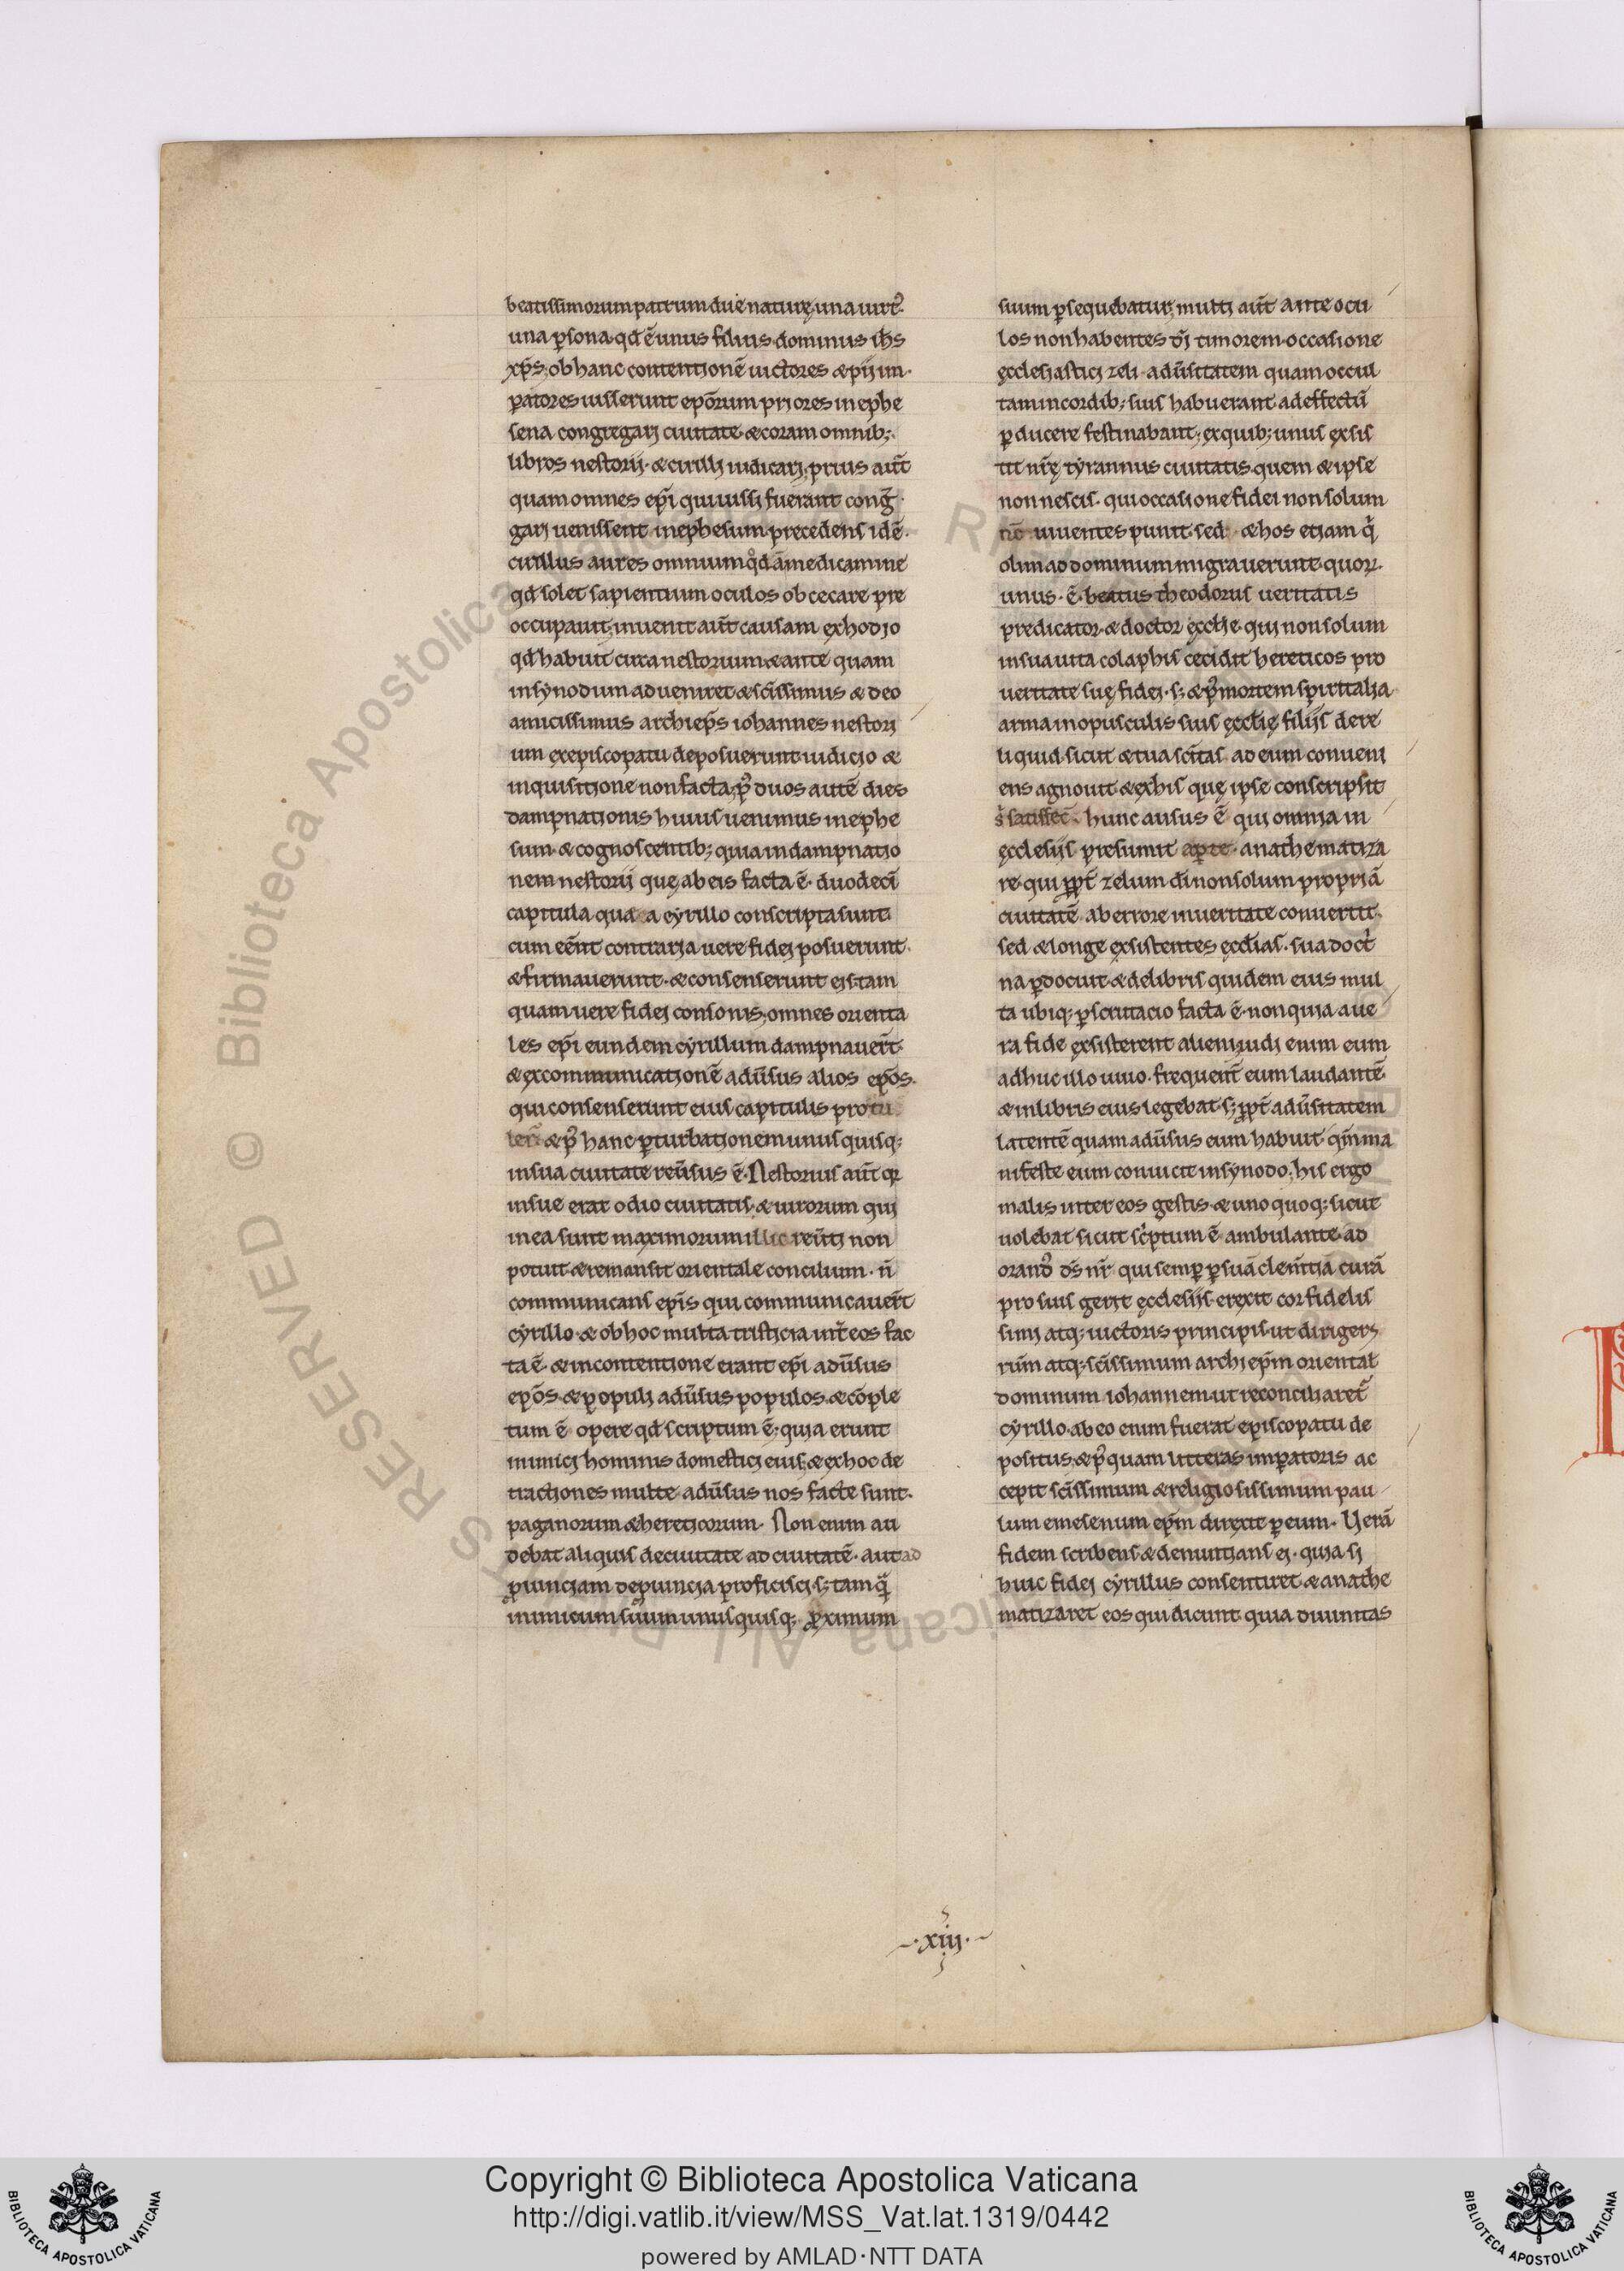 beatissimorum patrum due naturę una uirt᷒
una ꝑsona qđ ē unus filius dominus ih̄s
xp̄s; ob hanc contentionē uictores & pij im
ꝑatores iusserunt ep̄orum priores in ephe
sena congregari ciuitate & coram omnib;
libros nestorij & cirilli iudicari; prius aūt
quam omnes ep̄i qui iussi fuerant cong̃
gari uenissent in ephesum precedens idē
cirillus aures omnium
qđ solet sapientium oculos obcecare pre
occupauit; inuenit aūt causam ex hodio
qđ habuit circa nestorium & ante quam
in synodum adueniret & sc̄issimus & deo
amicissimus archiep̄s iohannes nestori
um ex episcopatu deposuerunt iudicio &
inquisitione non facta; p᷒ duos autē dies
dampnationis huius uenimus in ephe
sum & cognoscentib; quia in dampnatio
nem nestorij quę ab eis facta ē duodecī
capitula qua a cyrillo conscripta sunt
cum eēnt contraria uere fidei posuerunt
& firmauerunt & consenserunt eis tam
quam uere fidei consonis; omnes orienta
les ep̄i eundem cyrillum dampnauer̄t
& excommunicationē adūsus alios ep̄os
qui consenserunt eius capitulis protu
ler̄ & p᷒ hanc ꝑturbationem unusquisq;
in sua ciuitate reūsus ē. Nestorius aūt qr
in sue erat odio ciuitatis & uirorum qui
in ea sunt maximorum illic reūti non
potuit & remansit orientale concilium n̄
communicans ep̄is qui communicauer̄t
cyrillo & ob hoc multa tristicia int̄ eos fac
ta ē & in contentione erant ep̄i adūsus
ep̄os & populi adūsus populos & cōple
tum ē opere qđ scriptum ē quia erunt
inimici hominis domestici eius; & ex hoc de
tractiones multe adūsus nos facte sunt
paganorum & hereticorum. Non enim au
debat aliquis de ciuitate ad ciuitatē aut ad
ꝓuinciam de ꝓuincia proficisci s; tamq̃
inimicum suum unusquisq; ꝓximum
suum ꝑsequebatur; multi aūt ante ocu
los non habentes di timorem occasione
ęcclesiastici zeli adūsitatem quam occul
tam in cordib; suis habuerant ad effectū
ꝑducere festinabant; ex quib; unus exsis
tit nr̄ę tyrannus ciuitatis quem & ipse
non nescis qui occasione fidei non solum
nc̄ uiuentes punit sed & hos etiam q̄
olim ad dominum migrauerunt quoꝝ
unus ē beatus theodorus ueritatis
predicator & doctor ęcclie qui non solum
in sua uita colaphis cecidit hereticos pro
ueritate suę fidei s; & p᷒ mortem spiritalia
arma in opusculis suis ęcclię filijs dere
liquid sicut & tua sc̄itas ad eum conueni
ens agnouit & ex his quę ipse conscripsit
satisfec̄ hunc ausus ē qui omnia in
ęcclesijs presumit aꝑte anathematiza
re qui ꝓpt̄ zelum di non solum propriā
ciuitatē ab errore in ueritate conuertit
sed & longe exsistentes ęcclias sua doct
na ꝑdocuit & de libris quidem eius mul
ta ubiq; ꝑscrutacio facta ē non quia a ue
ra fide exsisterent alieni; iudi enim eum
adhuc illo uiuo frequent̄ eum laudantē
& in libris eius legebat s; ꝓpt̄ adūsitatem
latentē quam adūsus eum habuit qm̄ ma
nifeste eum conuicit in synodo; his ergo
malis inter eos gestis & uno quoq; sicut
uolebat sicut sc̄ptum ē ambulante ad
orand᷒ ds̄ nr̄ qui semꝑ ꝑ suā clem̄tiā curā
pro suis gerit ęcclesijs erexit cor fidelis
simi atq; uictoris principis ut dirigers
rum atq; sc̄issimum archiep̄m oriental
dominum iohannem ut reconciliaret
cyrillo ab eo enim fuerat episcopatu de
positus; & p᷒quam litteras imꝑatoris ac
cepit sc̄issimum & religiosissimum pau
lum emesenum ep̄m direxit ꝑ eum Uerā
fidem scribens & denuntians ei quia si
huic fidei cyrillus consentiret & anathe
matizaret eos qui dicunt quia diuinitas
·xiij·
© Biblioteca Apostolica Vaticana ALL RIGHTS RESERVED
Copyright © Biblioteca Apostolica Vaticana
http://digi.vatlib.it/view/MSS_Vat.lat.1319/0442
powered by AMLAD·NTT DATA
BIBLIOTECA APOSTOLICA VATICANA
BIBLIOTECA APOSTOLICA VATICANA